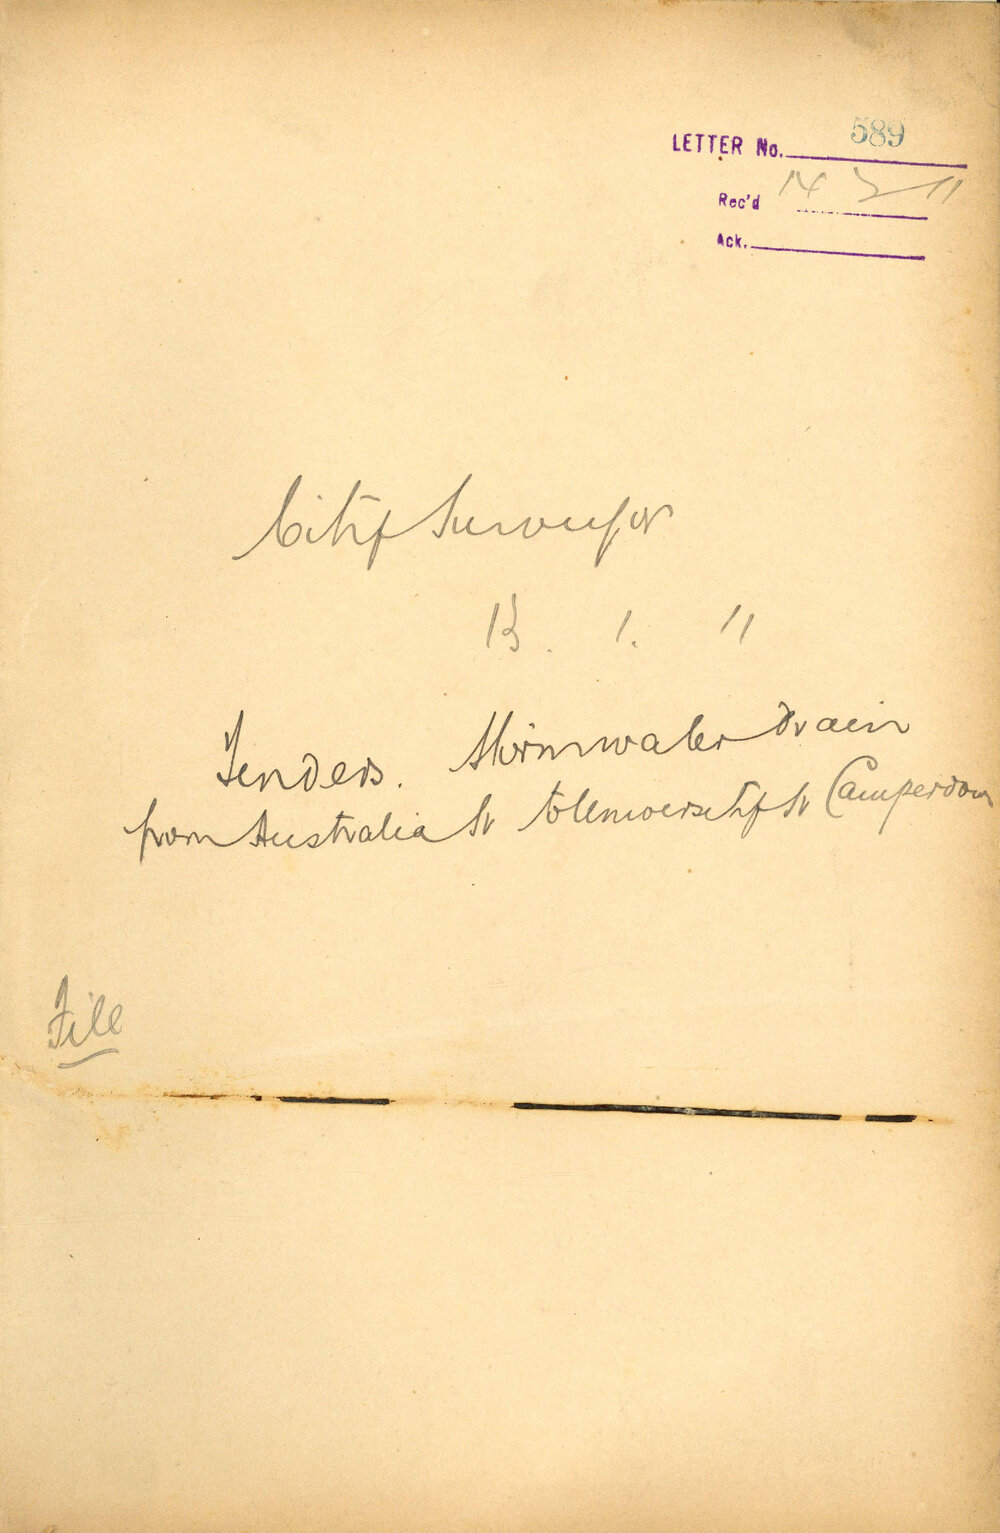 LETTER No. 589
Rec'd 14 2 11
Ack.
City Surveyor
13. 1. 11
Tenders. Stormwater Drain
from Australia St to University St Camperdown
File